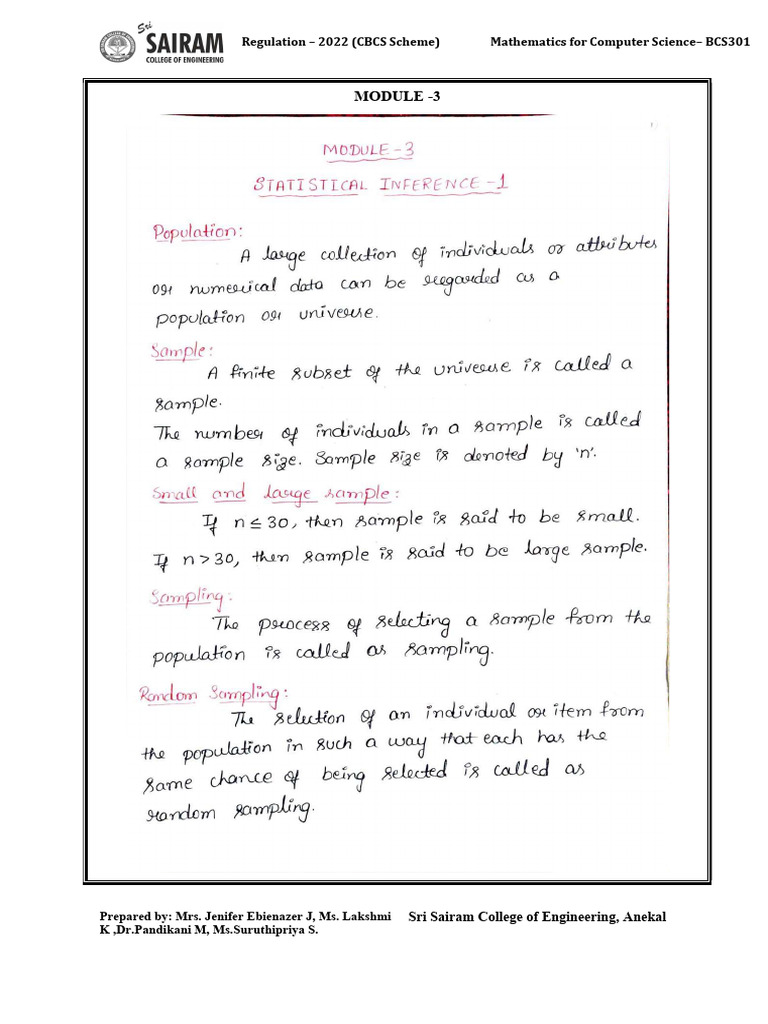 Sri
SAIRAM
COLLEGE OF ENGINEERING
Regulation – 2022 (CBCS Scheme) Mathematics for Computer Science– BCS301
MODULE -3
MODULE-3
STATISTICAL INFERENCE-1
Population:
A large collection of individuals or attributes
or numerical data can be regarded as a
population or universe.
Sample:
A finite subset of the universe is called a
sample.
The number of individuals in a sample is called
a sample size. Sample size is denoted by 'n'.
Small and large sample:
If n ≤ 30, then sample is said to be small.
If n > 30, then sample is said to be large sample.
Sampling:
The process of selecting a sample from the
population is called as sampling.
Random Sampling:
The selection of an individual or item from
the population in such a way that each has the
same chance of being selected is called as
random sampling.
Prepared by: Mrs. Jenifer Ebienazer J, Ms. Lakshmi Sri Sairam College of Engineering, Anekal
K ,Dr.Pandikani M, Ms.Suruthipriya S.